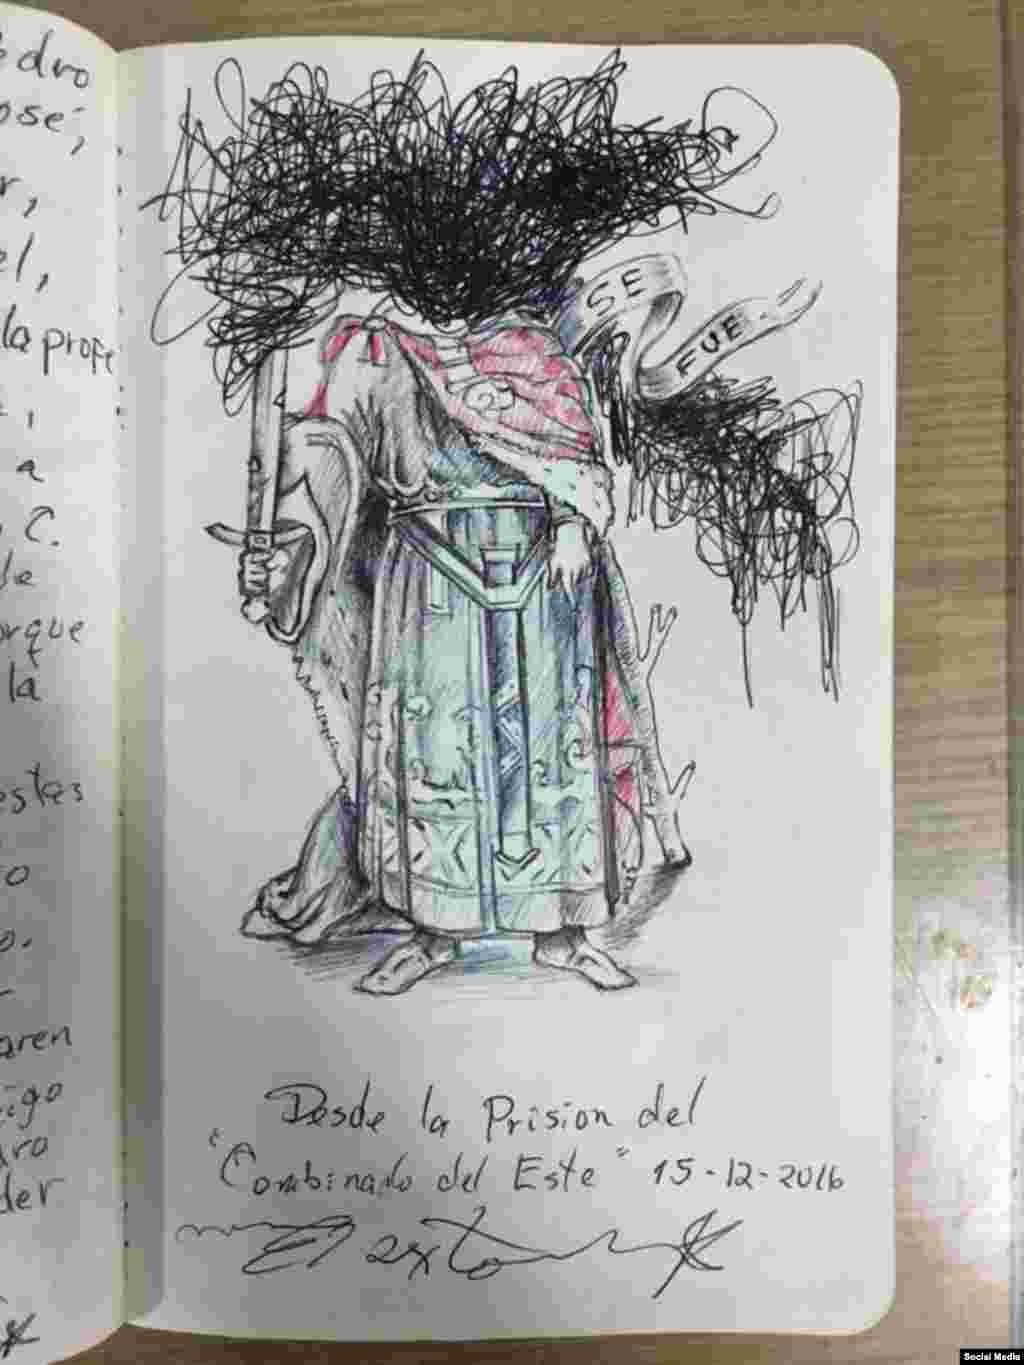 edro
ose,
r,
el,
la profe
i
a
C.
de
orque
la
estes
ro
o.
aren
igo
uro
der
SE
FUE.
Desde la Prision del
"Combinado del Este" 15-12-2016
El Sexto
Social Media